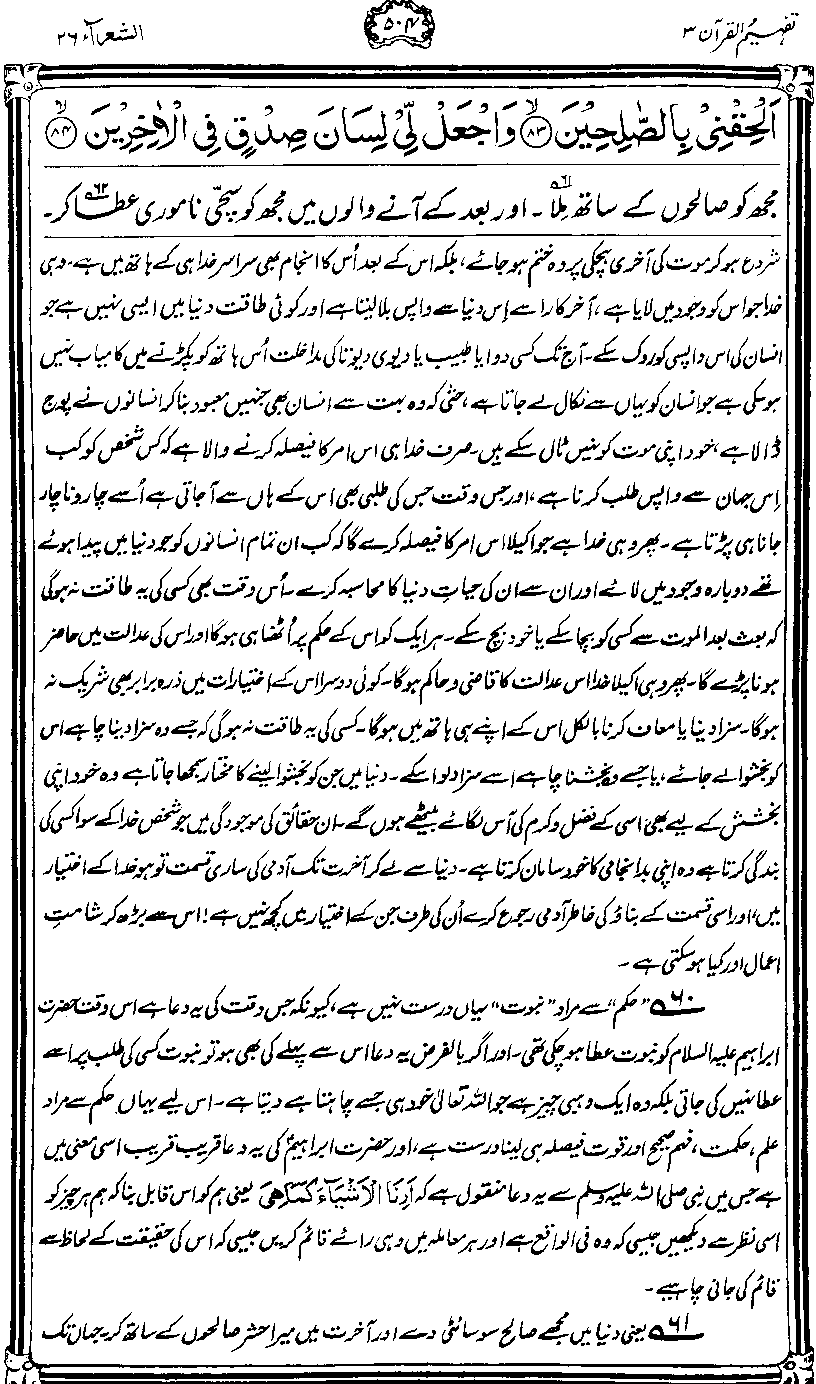 تفہیم القرآن ۳
۵۰۴
الشعرآء ۲۶
اَلْحِقْنِیْ بِالصّٰلِحِیْنَ ﴿۸۳﴾ وَاجْعَلْ لِّیْ لِسَانَ صِدْقٍ فِی الْاٰخِرِیْنَ ﴿۸۴﴾
مجھ کو صالحوں کے ساتھ مِلا ۶۱۔ اور بعد کے آنے والوں میں مجھ کو سچّی ناموری عطا ۶۲ کر۔
شروع ہو کر موت کی آخری ہچکی پر وہ ختم ہو جائے، بلکہ اس کے بعد اُس کا انجام بھی سراسر خدا ہی کے ہاتھ میں ہے۔ وہی
خدا جو اس کو وجود میں لایا ہے، آخر کار اسے اِس دنیا سے واپس بلا لیتا ہے اور کوئی طاقت دنیا میں ایسی نہیں ہے جو
انسان کی اس واپسی کو روک سکے۔ آج تک کسی دوا یا طبیب یا دیوی دیوتا کی مداخلت اُس ہاتھ کو پکڑنے میں کامیاب نہیں
ہوسکی ہے جو انسان کو یہاں سے نکال لے جاتا ہے، حتٰی کہ وہ بہت سے انسان بھی جنہیں معبود بنا کر انسانوں نے پوج
ڈالا ہے، خود اپنی موت کو نہیں ٹال سکے ہیں۔ صرف خدا ہی اس امر کا فیصلہ کرنے والا ہے کہ کس شخص کو کب
اِس جہان سے واپس طلب کرنا ہے، اور جس وقت جس کی طلبی بھی اس کے ہاں سے آجاتی ہے اُسے چار و ناچار
جانا ہی پڑتا ہے۔ پھر وہی خدا ہے جو اکیلا اس امر کا فیصلہ کرے گا کہ کب ان تمام انسانوں کو جو دنیا میں پیدا ہوئے
تھے دوبارہ وجود میں لائے اور ان سے ان کی حیاتِ دنیا کا محاسبہ کرے۔ اُس وقت بھی کسی کی یہ طاقت نہ ہوگی
کہ بعث بعد الموت سے کسی کو بچا سکے یا خود بچ سکے۔ ہر ایک کو اس کے حکم پر اُٹھنا ہی ہوگا اور اس کی عدالت میں حاضر
ہونا پڑے گا۔ پھر وہی اکیلا خدا اس عدالت کا قاضی و حاکم ہوگا۔ کوئی دوسرا اس کے اختیارات میں ذرہ برابر بھی شریک نہ
ہوگا۔ سزا دینا یا معاف کرنا بالکل اس کے اپنے ہی ہاتھ میں ہوگا۔ کسی کی یہ طاقت نہ ہوگی کہ جسے وہ سزا دینا چاہے اس
کو بخشوا لے جائے، یا جسے وہ بخشنا چاہے اسے سزا دلوا سکے۔ دنیا میں جن کو بخشوا لینے کا مختار سمجھا جاتا ہے وہ خود اپنی
بخشش کے لیے بھی اسی کے فضل و کرم کی آس لگائے بیٹھے ہوں گے۔ ان حقائق کی موجودگی میں جو شخص خدا کے سوا کسی کی
بندگی کرتا ہے وہ اپنی بدانجامی کا خود سامان کرتا ہے۔ دنیا سے لے کر آخرت تک آدمی کی ساری قسمت تو ہو خدا کے اختیار
میں، اور اسی قسمت کے بناؤ کی خاطر آدمی رجوع کرے اُن کی طرف جن کے اختیار میں کچھ نہیں ہے! اس سے بڑھ کر شامتِ
اعمال اور کیا ہو سکتی ہے۔
۶۰ ”حکم“ سے مراد ”نبوت“ یہاں درست نہیں ہے، کیونکہ جس وقت کی یہ دعا ہے اس وقت حضرت
ابراہیم علیہ السلام کو نبوت عطا ہو چکی تھی۔ اور اگر بالفرض یہ دعا اس سے پہلے کی بھی ہو تو نبوت کسی کی طلب پر اسے
عطا نہیں کی جاتی بلکہ وہ ایک وہبی چیز ہے جو اللہ تعالیٰ خود ہی جسے چاہتا ہے دیتا ہے۔ اس لیے یہاں حکم سے مراد
علم، حکمت، فہم صحیح اور قوت فیصلہ ہی لینا درست ہے، اور حضرت ابراہیمؑ کی یہ دعا قریب قریب اسی معنی میں
ہے جس میں نبی صلی اللہ علیہ وسلم سے یہ دعا منقول ہے کہ اَرِنَا الْاَشْیَآءَ کَمَا ھِیَ یعنی ہم کو اس قابل بنا کہ ہم ہر چیز کو
اسی نظر سے دیکھیں جیسی کہ وہ فی الواقع ہے اور ہر معاملہ میں وہی رائے قائم کریں جیسی کہ اس کی حقیقت کے لحاظ سے
قائم کی جانی چاہیے۔
۶۱ یعنی دنیا میں مجھے صالح سوسائٹی دے اور آخرت میں میرا حشر صالحوں کے ساتھ کر۔ جہاں تک